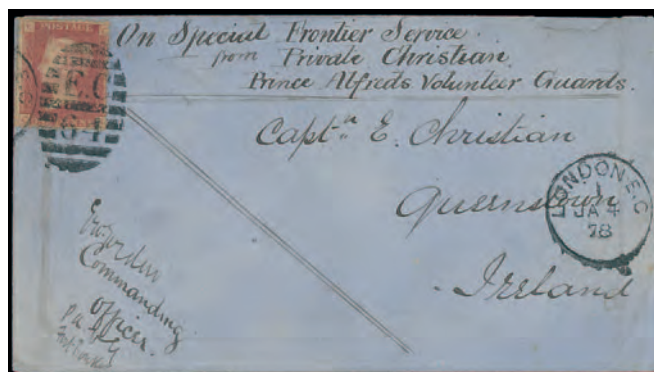 POSTAGE
On Special Frontier Service.
from Private Christian,
Prince Alfreds Volunteer Guards.
E.C
64
Capt.n E. Christian
Queenstown
Ireland
LONDON E.C
1
JA 4
78
Commanding
Officer.